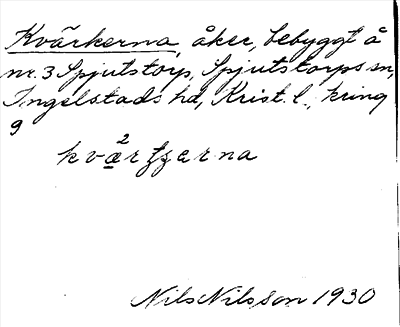 Kvärkerna, åker, bebyggt å
nr. 3 Spjutstorp, Spjutstorps sn,
Ingelstads hd, Krist. l., kring
9
2
kværtjærna
Nils Nilsson 1930